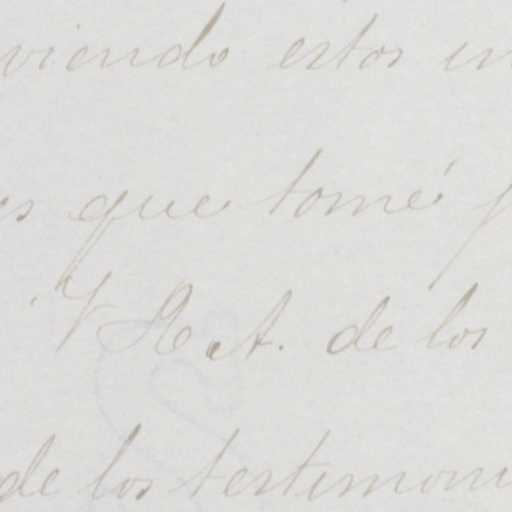 viendo estos in
es que tomé p
A. de los
de los testimoni